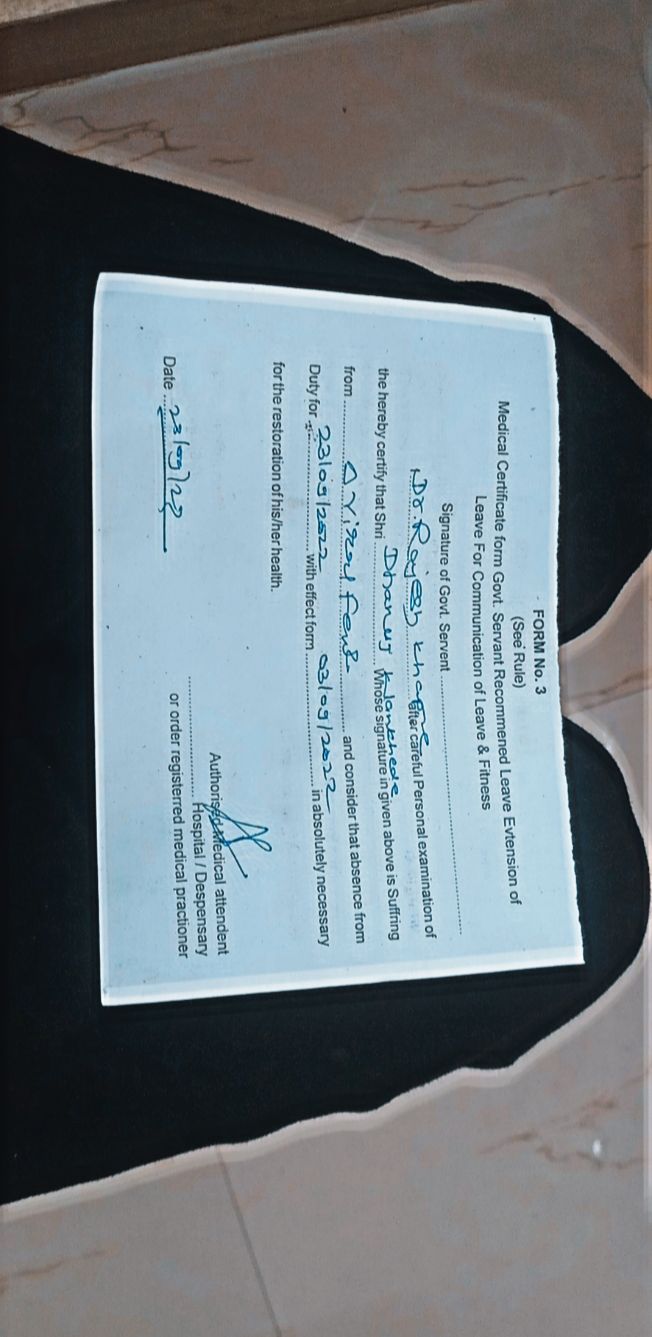 FORM No. 3
(See Rule)
Medical Certificate form Govt. Servant Recommened Leave Evtension of
Leave For Communication of Leave & Fitness
Signature of Govt. Servent ..........................
Dr. Rajesh Khapre after careful Personal examination of
the hereby certify that Shri Dhanuj Wankhede Whose signature in given above is Suffring
from ............ A Viral fever ............ and consider that absence from
Duty for 23/09/2022 with effect form 03/09/2022 in absolutely necessary
for the restoration of his/her health.
Authorised Medical attendent
Date 23/09/22 .......... Hospital / Despensary
or order registerred medical practioner